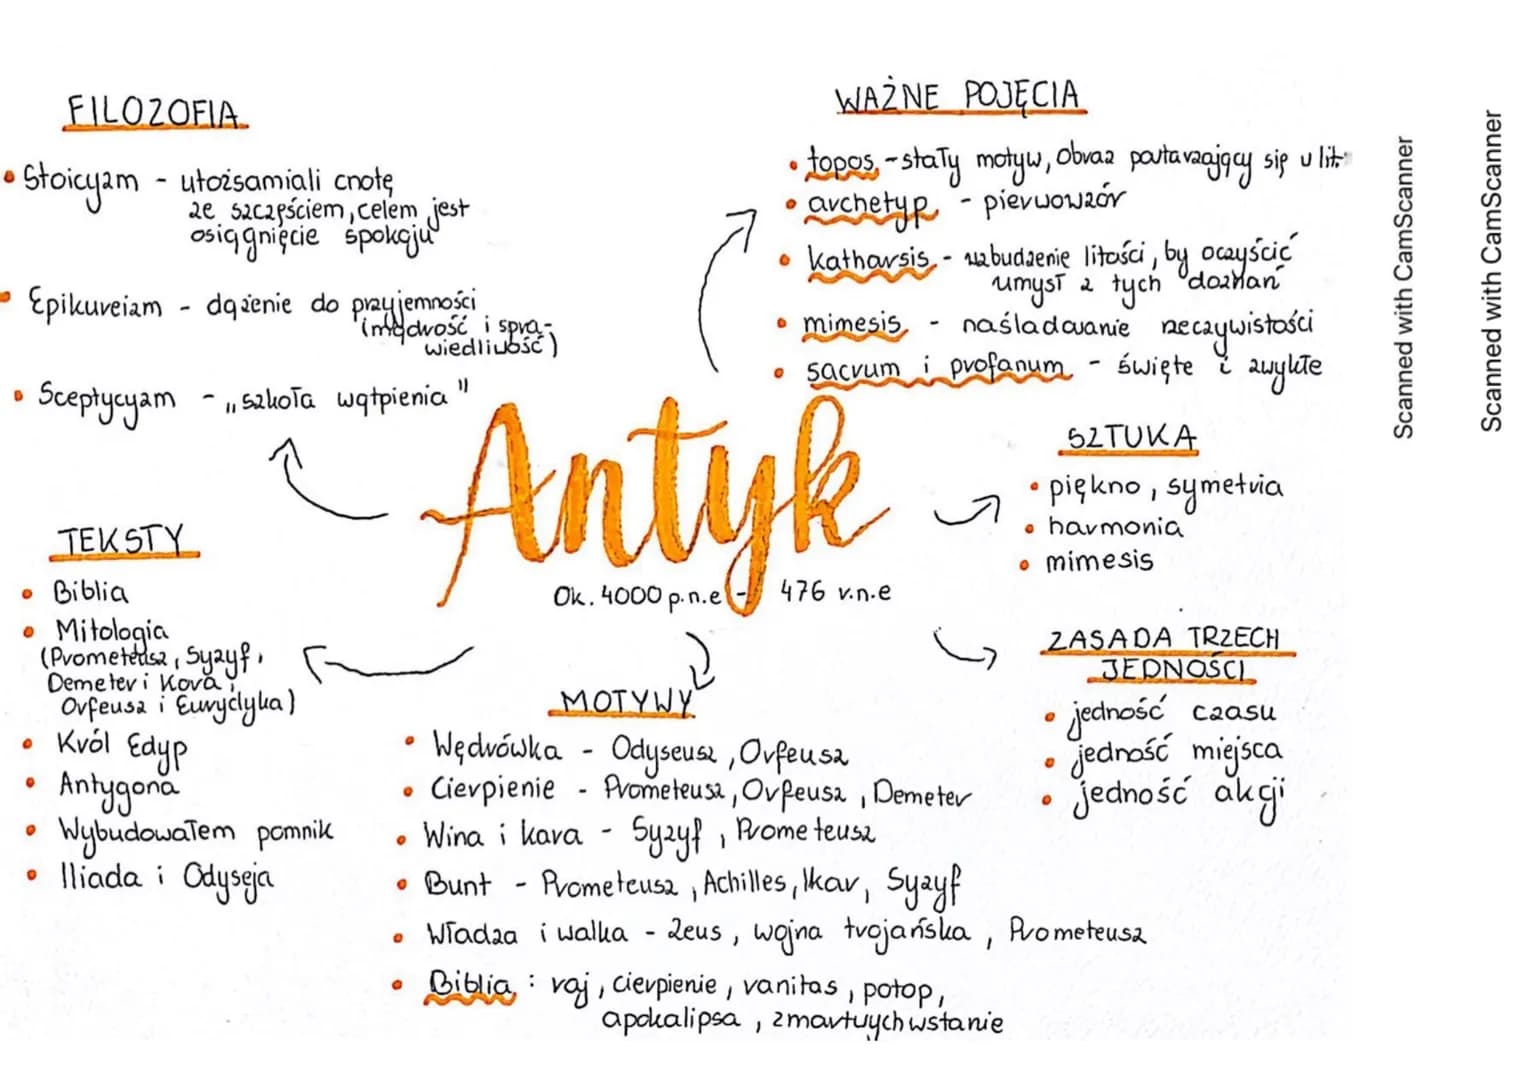 FILOZOFIA
• Stoicyzm - utożsamiali cnotę
ze szczęściem, celem jest
osiągnięcie spokoju
• Epikureizm - dążenie do przyjemności
(mądrość i spra-
wiedliwość)
• Sceptycyzm - „szkoła wątpienia"
WAŻNE POJĘCIA
• topos - stały motyw, obraz powtarzający się w lit.
• archetyp - pierwowzór
• katharsis - wzbudzenie litości, by oczyścić
umysł z tych doznań
• mimesis - naśladowanie rzeczywistości
• sacrum i profanum - święte i zwykłe
Antyk
Ok. 4000 p.n.e - 476 r.n.e
SZTUKA
• piękno, symetria
• harmonia
• mimesis
ZASADA TRZECH
JEDNOŚCI
• jedność czasu
• jedność miejsca
• jedność akcji
TEKSTY
• Biblia
• Mitologia
(Prometeusz, Syzyf,
Demeter i Kora,
Orfeusz i Eurydyka)
• Król Edyp
• Antygona
• Wybudowałem pomnik
• Iliada i Odyseja
MOTYWY
• Wędrówka - Odyseusz, Orfeusz
• Cierpienie - Prometeusz, Orfeusz, Demeter
• Wina i kara - Syzyf, Prometeusz
• Bunt - Prometeusz, Achilles, Ikar, Syzyf
• Władza i walka - Zeus, wojna trojańska, Prometeusz
• Biblia: raj, cierpienie, vanitas, potop,
apokalipsa, zmartwychwstanie
Scanned with CamScanner
Scanned with CamScanner